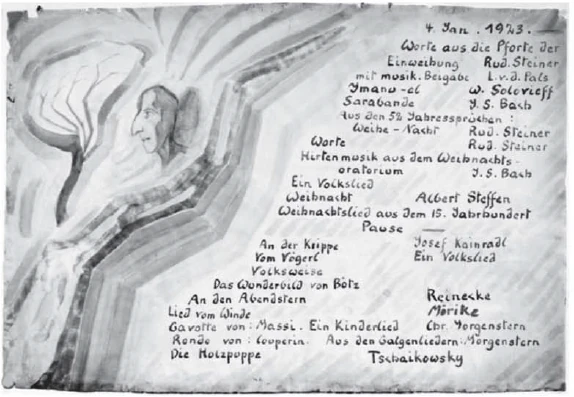 4. Jan. 1923.
Worte aus die Pforte der
Einweihung Rud. Steiner
mit musik. Beigabe L.v.d. Pals
Imanu-el W. Solovieff
Sarabande J.S. Bach
Aus den 52 Jahressprüchen:
Weihe-Nacht Rud. Steiner
Worte Rud. Steiner
Hirtenmusik aus dem Weihnachts-
oratorium J.S. Bach
Ein Volkslied
Weihnacht Albert Steffen
Weihnachtslied aus dem 15. Jahrhundert
Pause —
An der Krippe Josef Kainradl
Vom Vögerl Ein Volkslied
Volksweise
Das Wunderbild von Bötz
An den Abendstern Reinecke
Lied vom Winde Mörike
Gavotte von: Massi. Ein Kinderlied Chr. Morgenstern
Rondo von: Couperin. Aus den Galgenliedern: Morgenstern
Die Holzpuppe Tschaikowsky